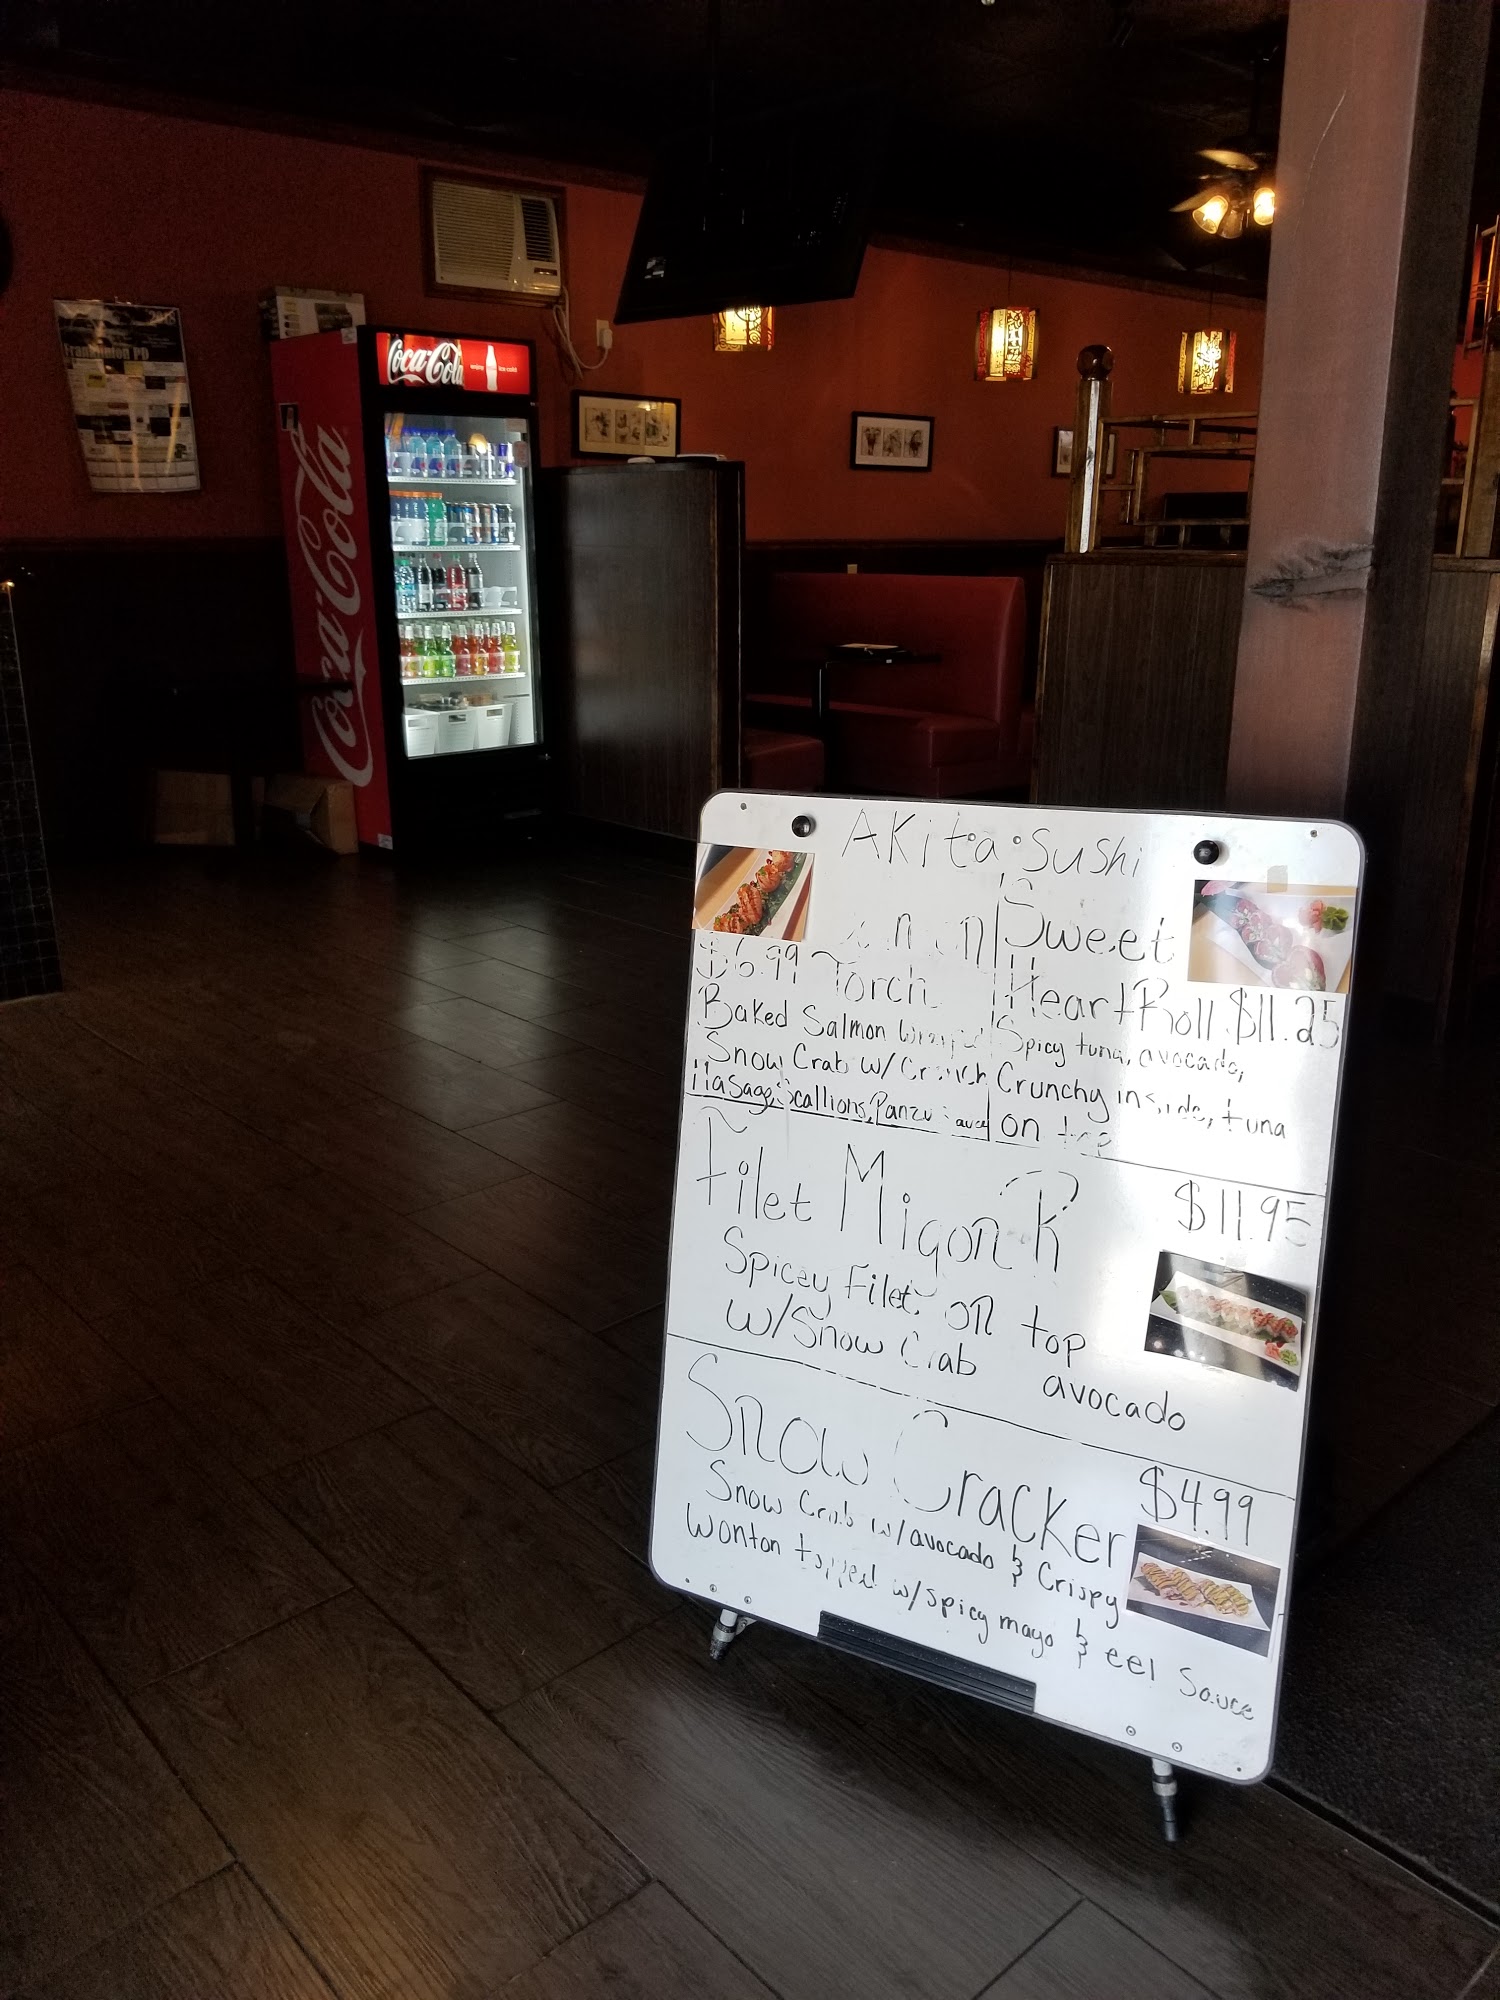 Coca-Cola
Coca-Cola
Akita Sushi
$6.99 Torch
Baked Salmon
Snow Crab w/
Masago, Scallions, Panzu Sauce
Sweet
Heart Roll $11.25
Spicy tuna, avocado,
Crunchy inside, tuna
on top
Filet Migon R
$11.95
Spicey Filet on top
w/Snow Crab avocado
Snow Cracker
$4.99
Snow Crab w/avocado & Crispy
Wonton topped w/spicy mayo & eel Sauce